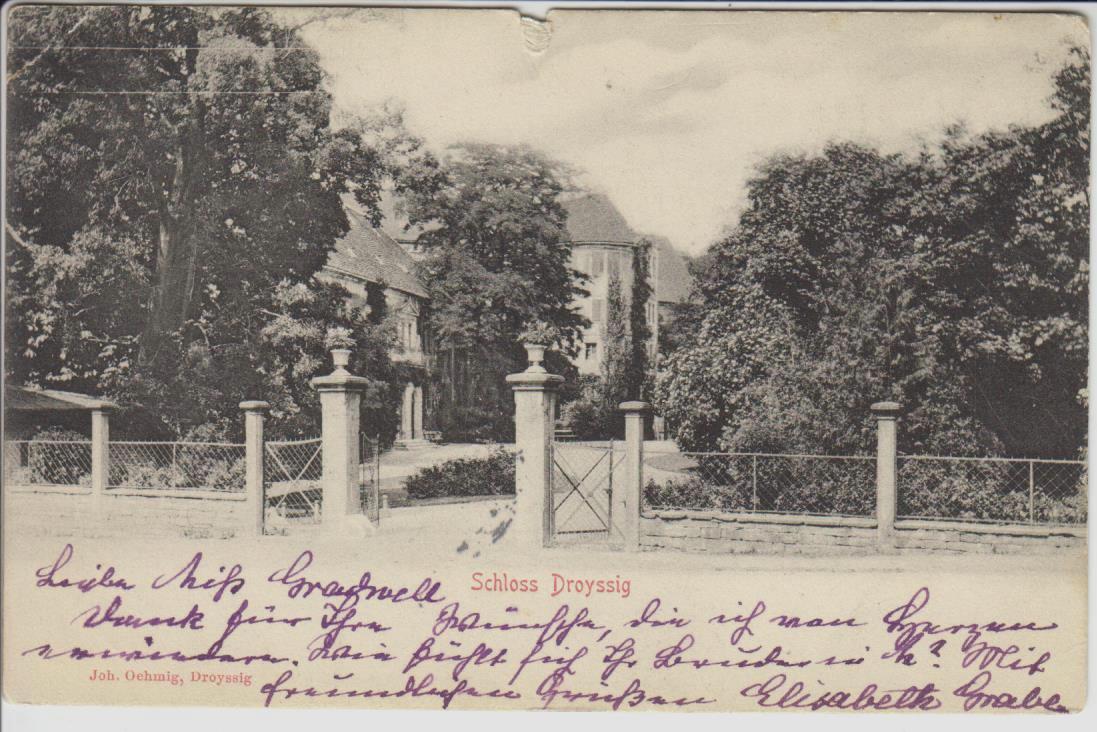 Schloss Droyssig
Liebe Miß Gradwell
Dank für Ihre Wünsche, die ich von Herzen
erwiedere. Wie fühlt sich Ihr Bruder in ? Mit
Joh. Oehmig, Droyssig
freundlichen Grüßen Elisabeth Grabe